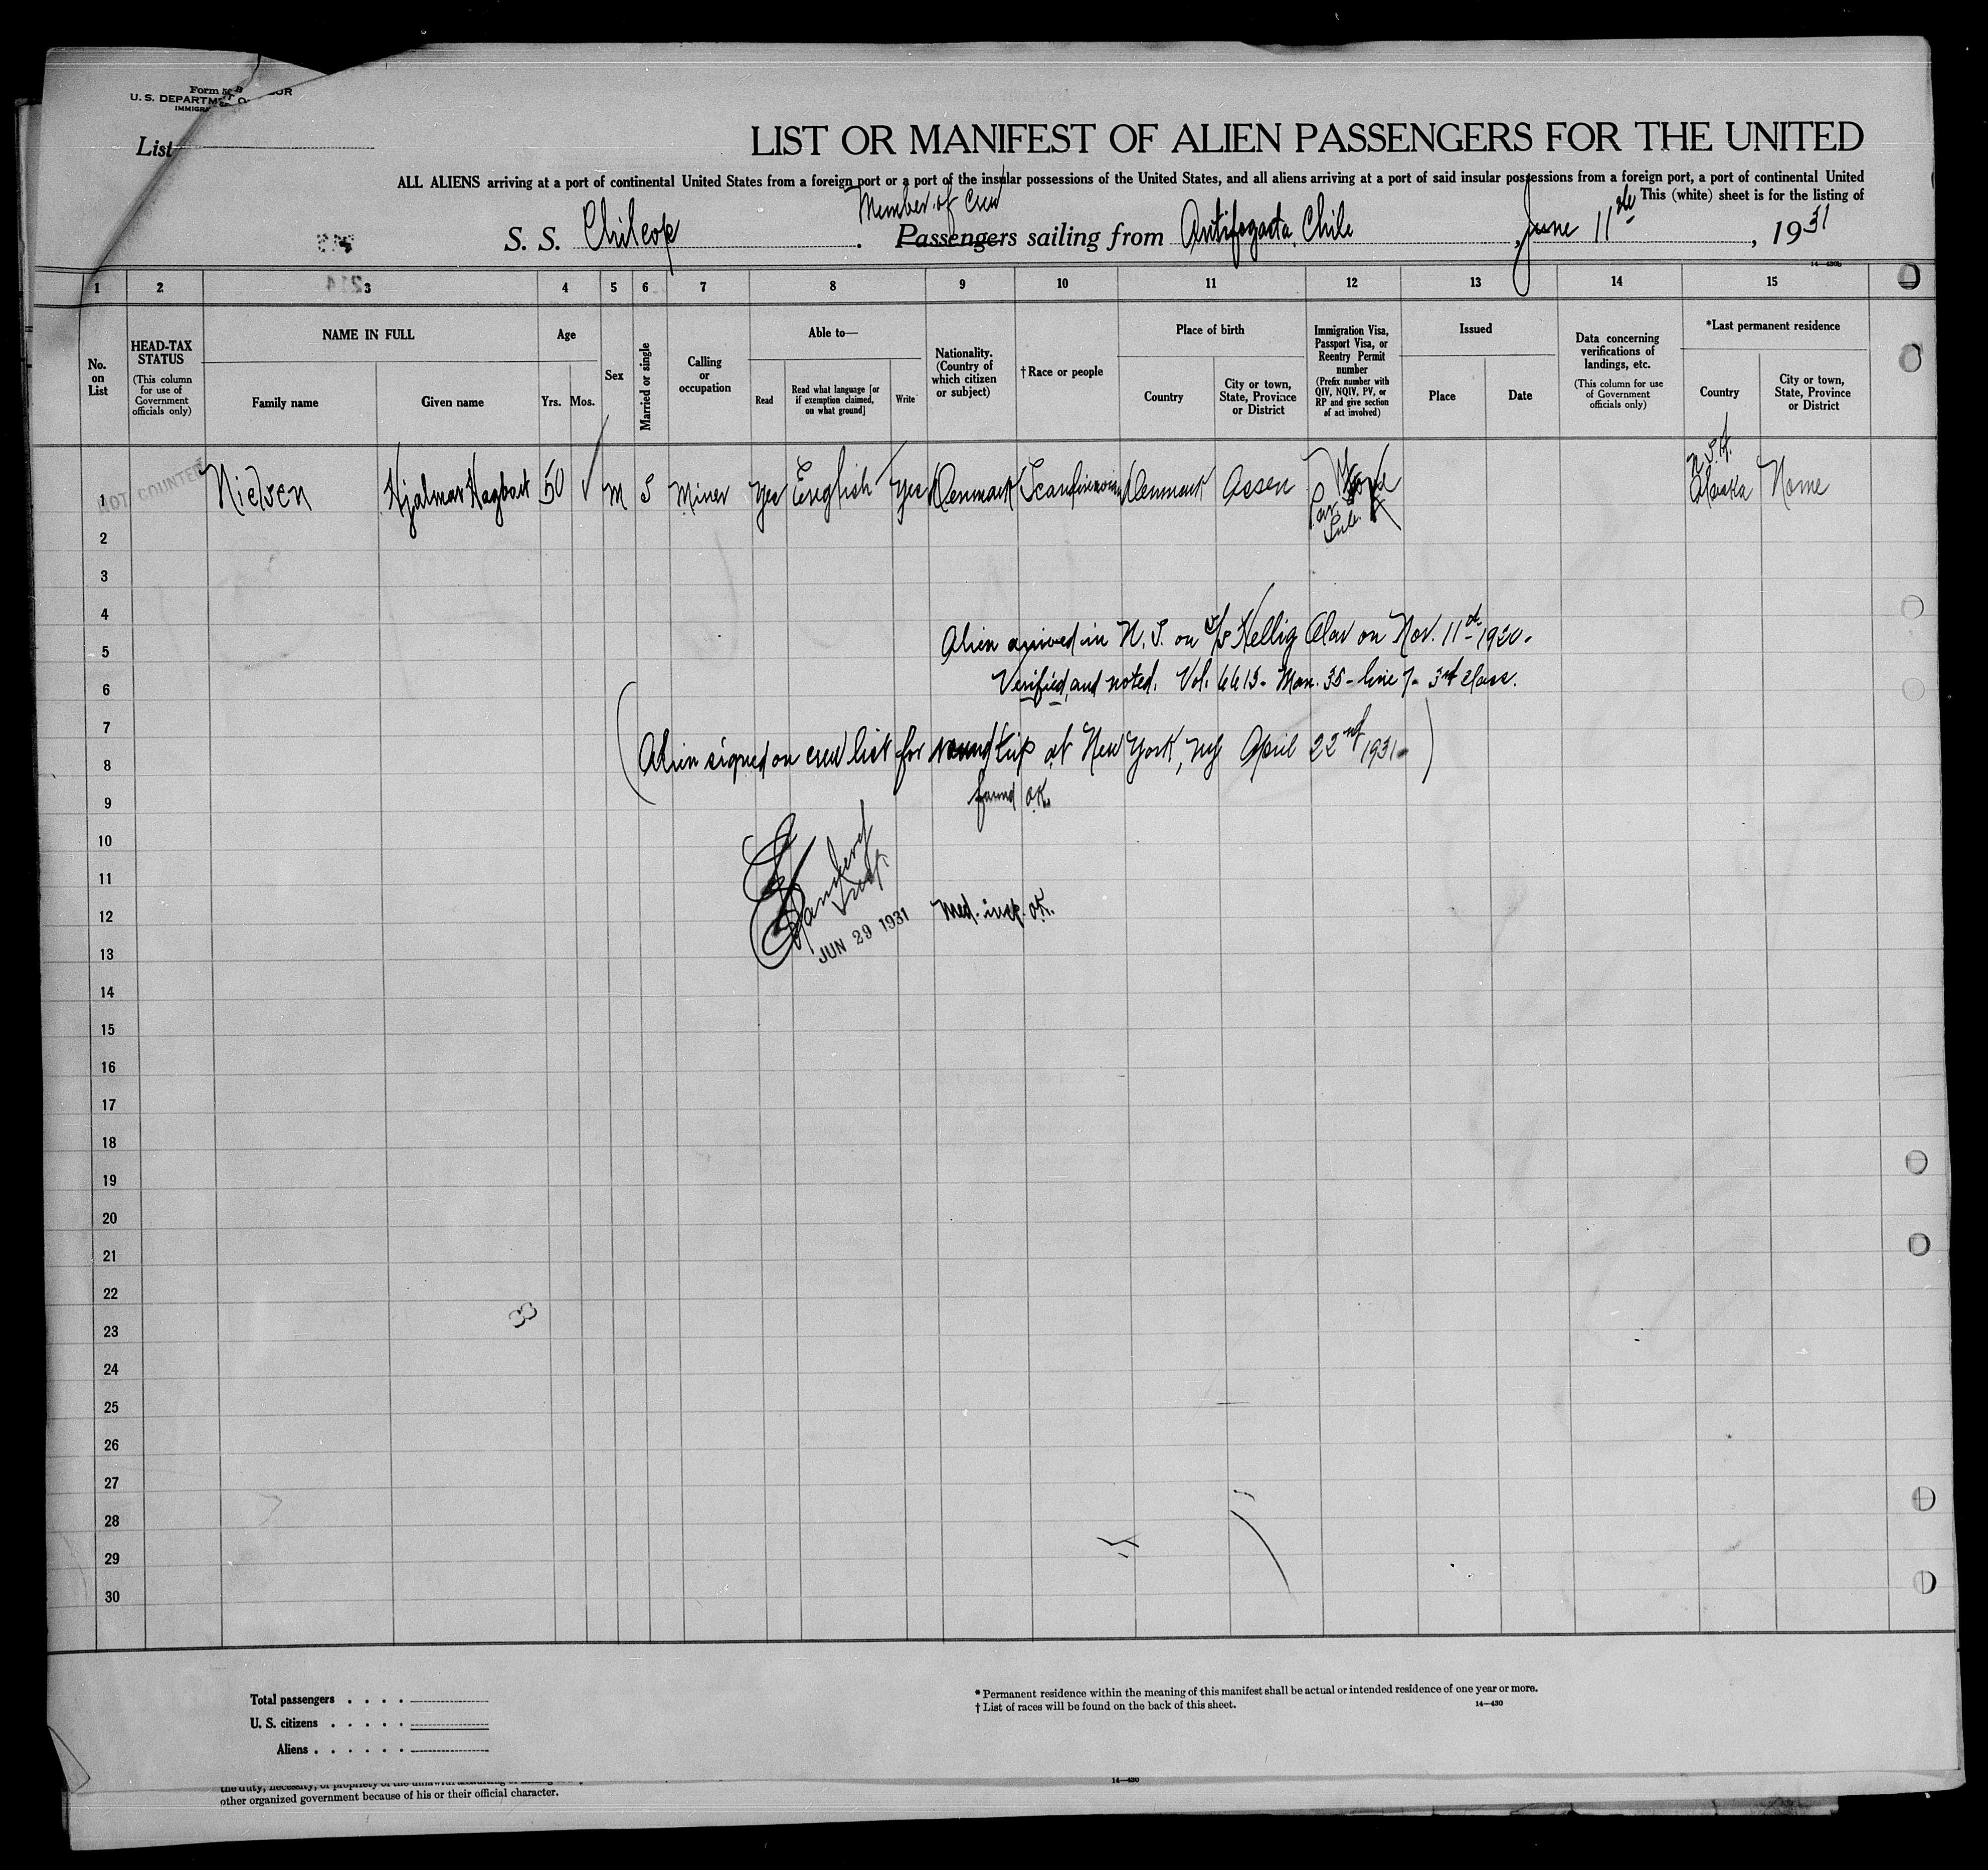 Form 50
U. S. DEPARTM
IMMIGRA
List
LIST OR MANIFEST OF ALIEN PASSENGERS FOR THE UNITED
ALL ALIENS arriving at a port of continental United States from a foreign port or a port of the insular possessions of the United States, and all aliens arriving at a port of said insular possessions from a foreign port, a port of continental United
This (white) sheet is for the listing of
Member of Crew
S. S. Chilcop . Passengers sailing from Antifogasta, Chile , June 11th , 1931
14—430b
1 2 3 4 5 6 7 8 9 10 11 12 13 14 15
214
No. on List
HEAD-TAX STATUS
(This column for use of Government officials only)
NAME IN FULL
Family name
Given name
Age
Yrs.
Mos.
Sex
Married or single
Calling or occupation
Able to—
Read
Read what language [or if exemption claimed, on what ground]
Write
Nationality. (Country of which citizen or subject)
†Race or people
Place of birth
Country
City or town, State, Province or District
Immigration Visa, Passport Visa, or Reentry Permit number
(Prefix number with QIV, NQIV, PV, or RP and give section of act involved)
Issued
Place
Date
Data concerning verifications of landings, etc.
(This column for use of Government officials only)
*Last permanent residence
Country
City or town, State, Province or District
NOT COUNTED
1 Nielsen Hjalmar Hagbart 50 ✓ M S Miner Yes English Yes Denmark Scandinavian Denmark Assen Alaska Nome
2
3
4
Alien arrived in N. Y. on S/S Hellig Olav on Nov. 11th 1920.
5
Verified, and noted. Vol. 6613- Man. 35- line 7- 3rd class.
6
7
(Alien signed on crew list for round trip at New York, NY April 22nd 1931.)
8
found O.K.
9
10
11
12
Med. insp. O.K.
JUN 29 1931
13
14
15
16
17
18
19
20
21
22
33
23
24
25
26
27
28
29
30
Total passengers
U. S. citizens
Aliens
* Permanent residence within the meaning of this manifest shall be actual or intended residence of one year or more.
† List of races will be found on the back of this sheet.
14—430
other organized government because of his or their official character.
14—430